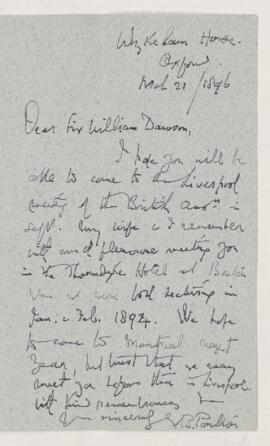 Wykeham House.
Oxford.
Mch 21/1896
Dear Sir William Dawson,
I hope you will be
able to come to the Liverpool
meeting of the British Assn in
Sept. My wife & I remember
with much pleasure meeting you
in the Thorndyke Hotel at Boston
when we were both lecturing in
Jan. & Feb. 1894. We hope
to come to Montreal next
year, but trust that we may
meet you before then in Liverpool.
With kind remembrances
Yrs sincerely E. B. Poulton